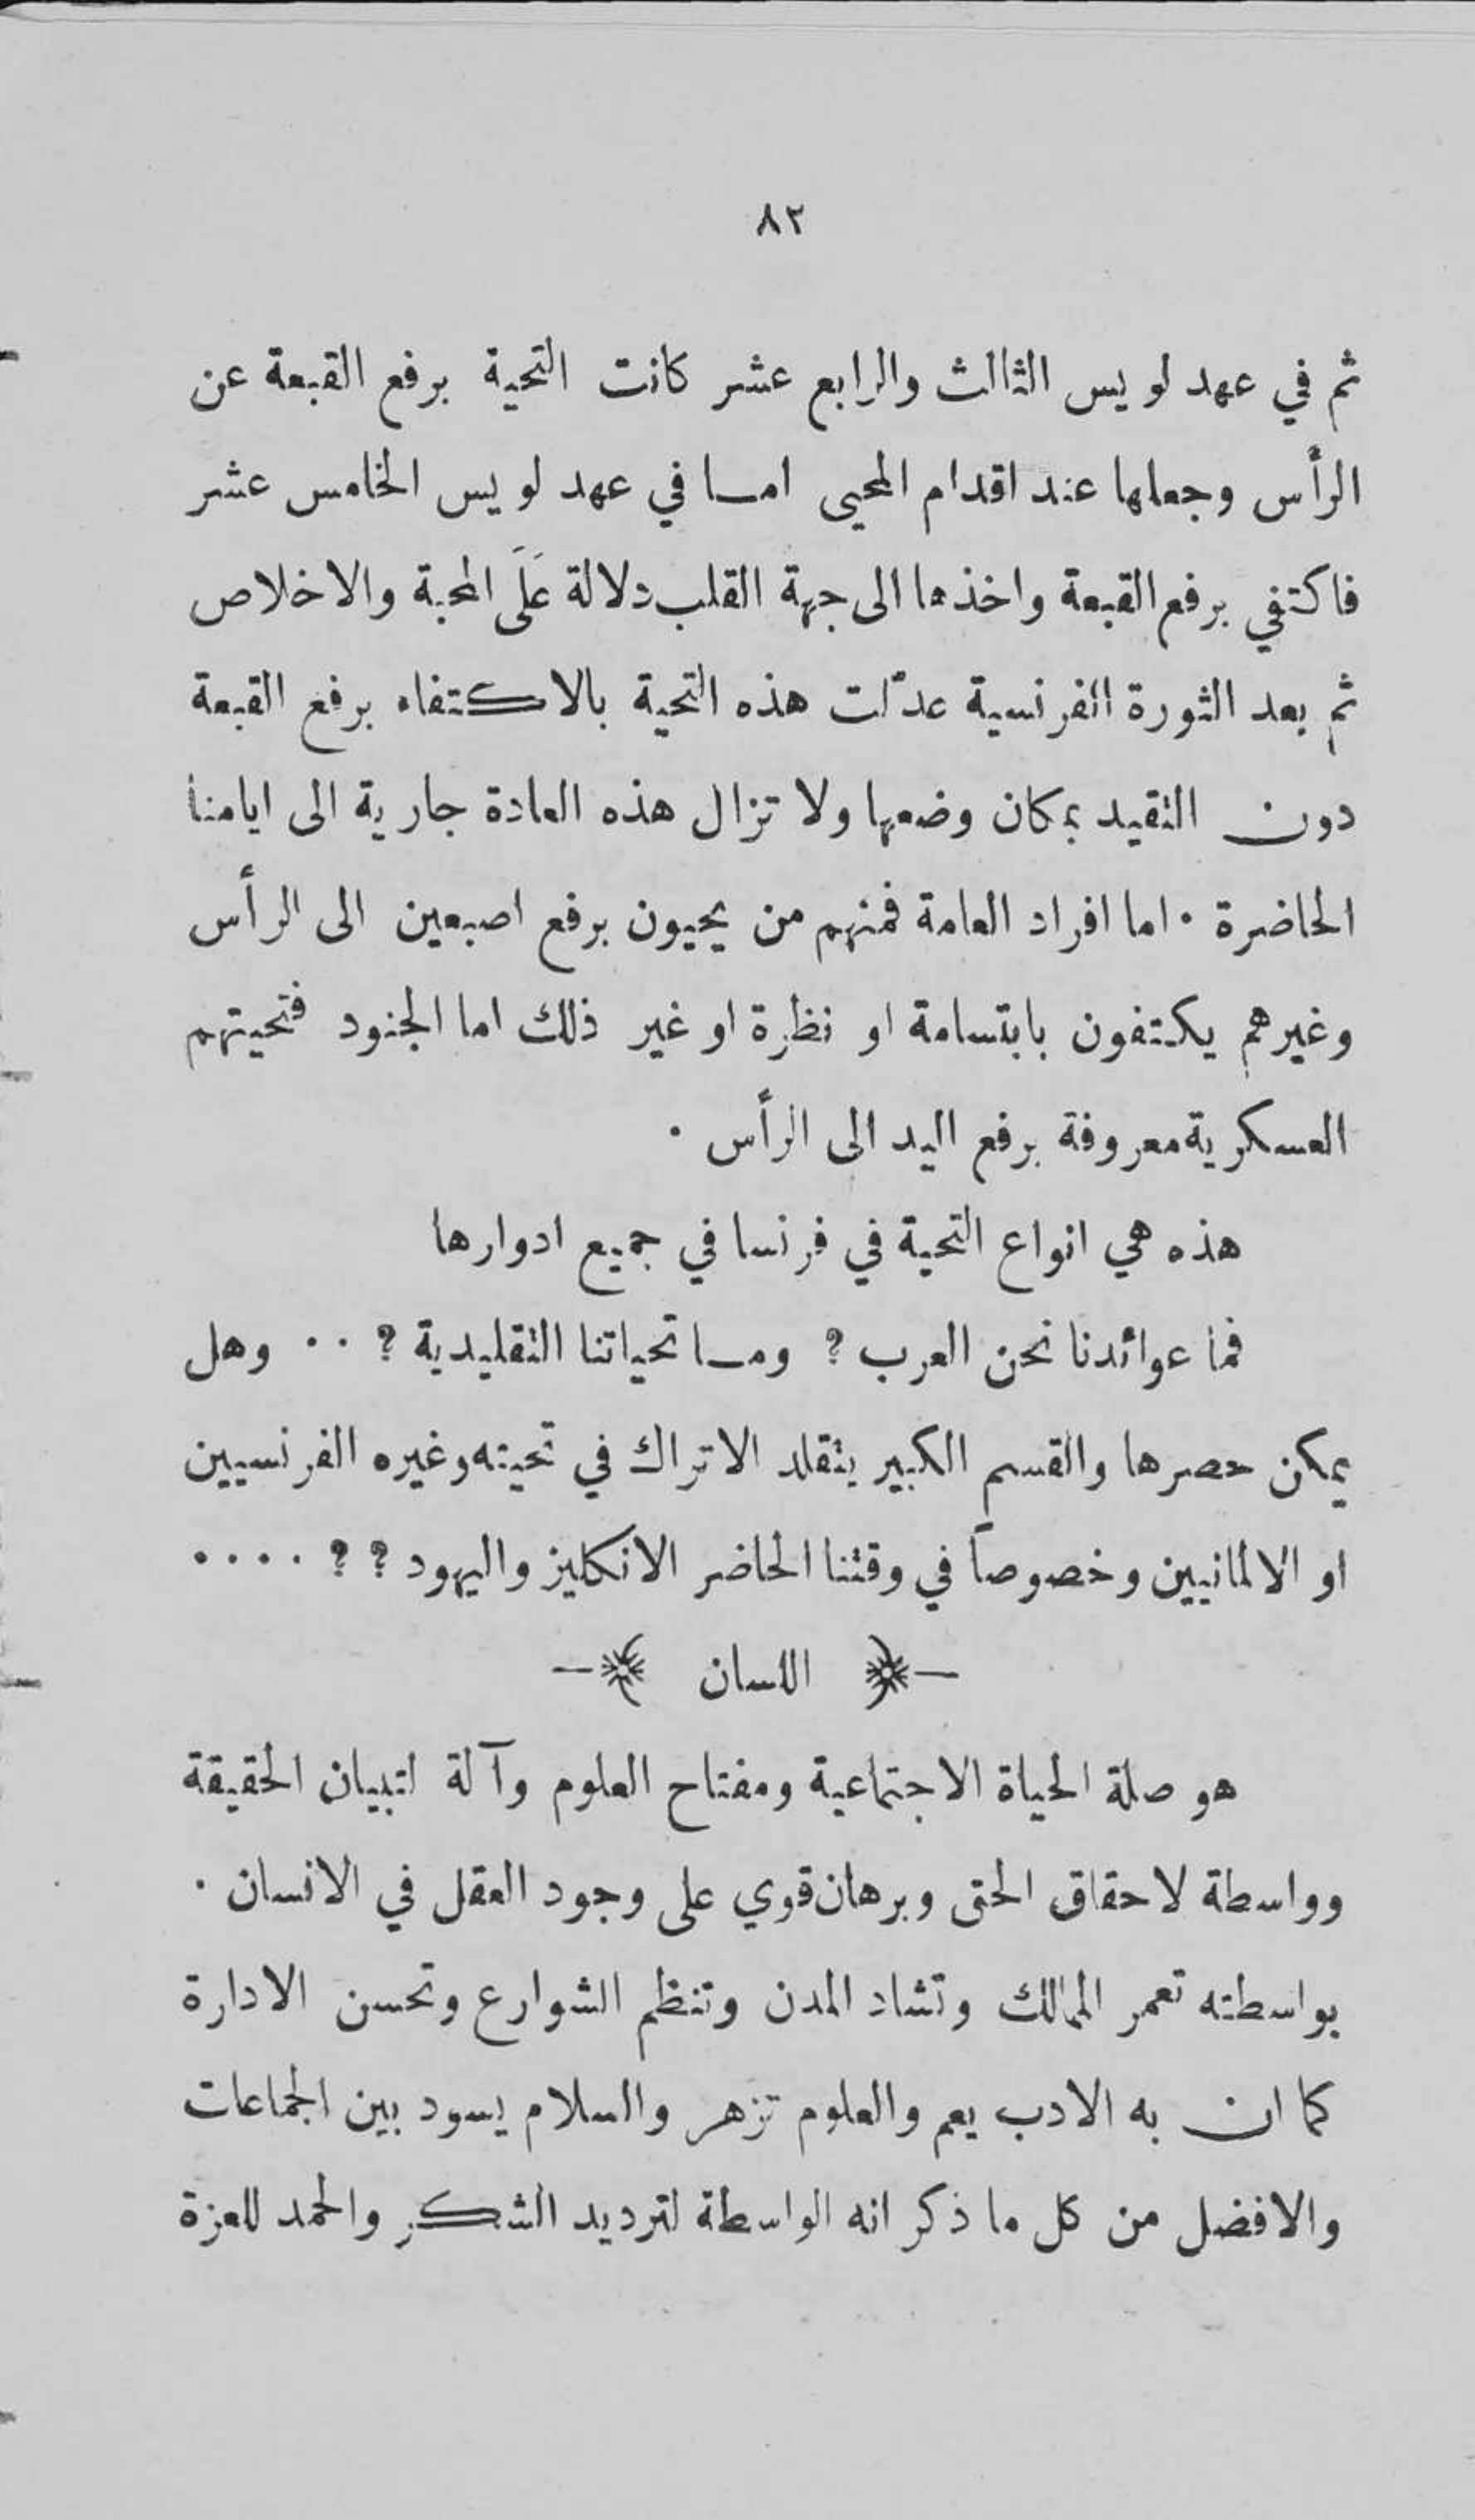 ٨٢
ثم في عهد لويس الثالث والرابع عشر كانت التحية برفع القبعة عن
الرأس وجعلها عند اقدام المحيى اما في عهد لويس الخامس عشر
فاكتفي برفع القبعة واخذها الى جهة القلب دلالة عَلَى المحبة والاخلاص
ثم بعد الثورة الفرنسية عدّلت هذه التحية بالاكتفاء برفع القبعة
دون التقيد بمكان وضعها ولا تزال هذه العادة جارية الى ايامنا
الحاضرة ٠ اما افراد العامة فمنهم من يحيون برفع اصبعين الى الرأس
وغيرهم يكتفون بابتسامة او نظرة او غير ذلك اما الجنود فتحيتهم
العسكرية معروفة برفع اليد الى الرأس ٠
هذه هي انواع التحية في فرنسا في جميع ادوارها
فما عوائدنا نحن العرب ؟ وما تحياتنا التقليدية ؟ ٠٠ وهل
يمكن حصرها والقسم الكبير يتقلد الاتراك في تحيته وغيره الفرنسيين
او الالمانيين وخصوصاً في وقتنا الحاضر الانكليز واليهود ؟ ؟ ٠٠٠٠
اللسان
هو صلة الحياة الاجتماعية ومفتاح العلوم وآلة لتبيان الحقيقة
وواسطة لاحقاق الحق وبرهان قوي على وجود العقل في الانسان ٠
بواسطته تعمر الممالك وتشاد المدن وتنظم الشوارع وتحسن الادارة
كما ان به الادب يعم والعلوم تزهر والسلام يسود بين الجماعات
والافضل من كل ما ذكر انه الواسطة لترديد الشكر والحمد للعزة